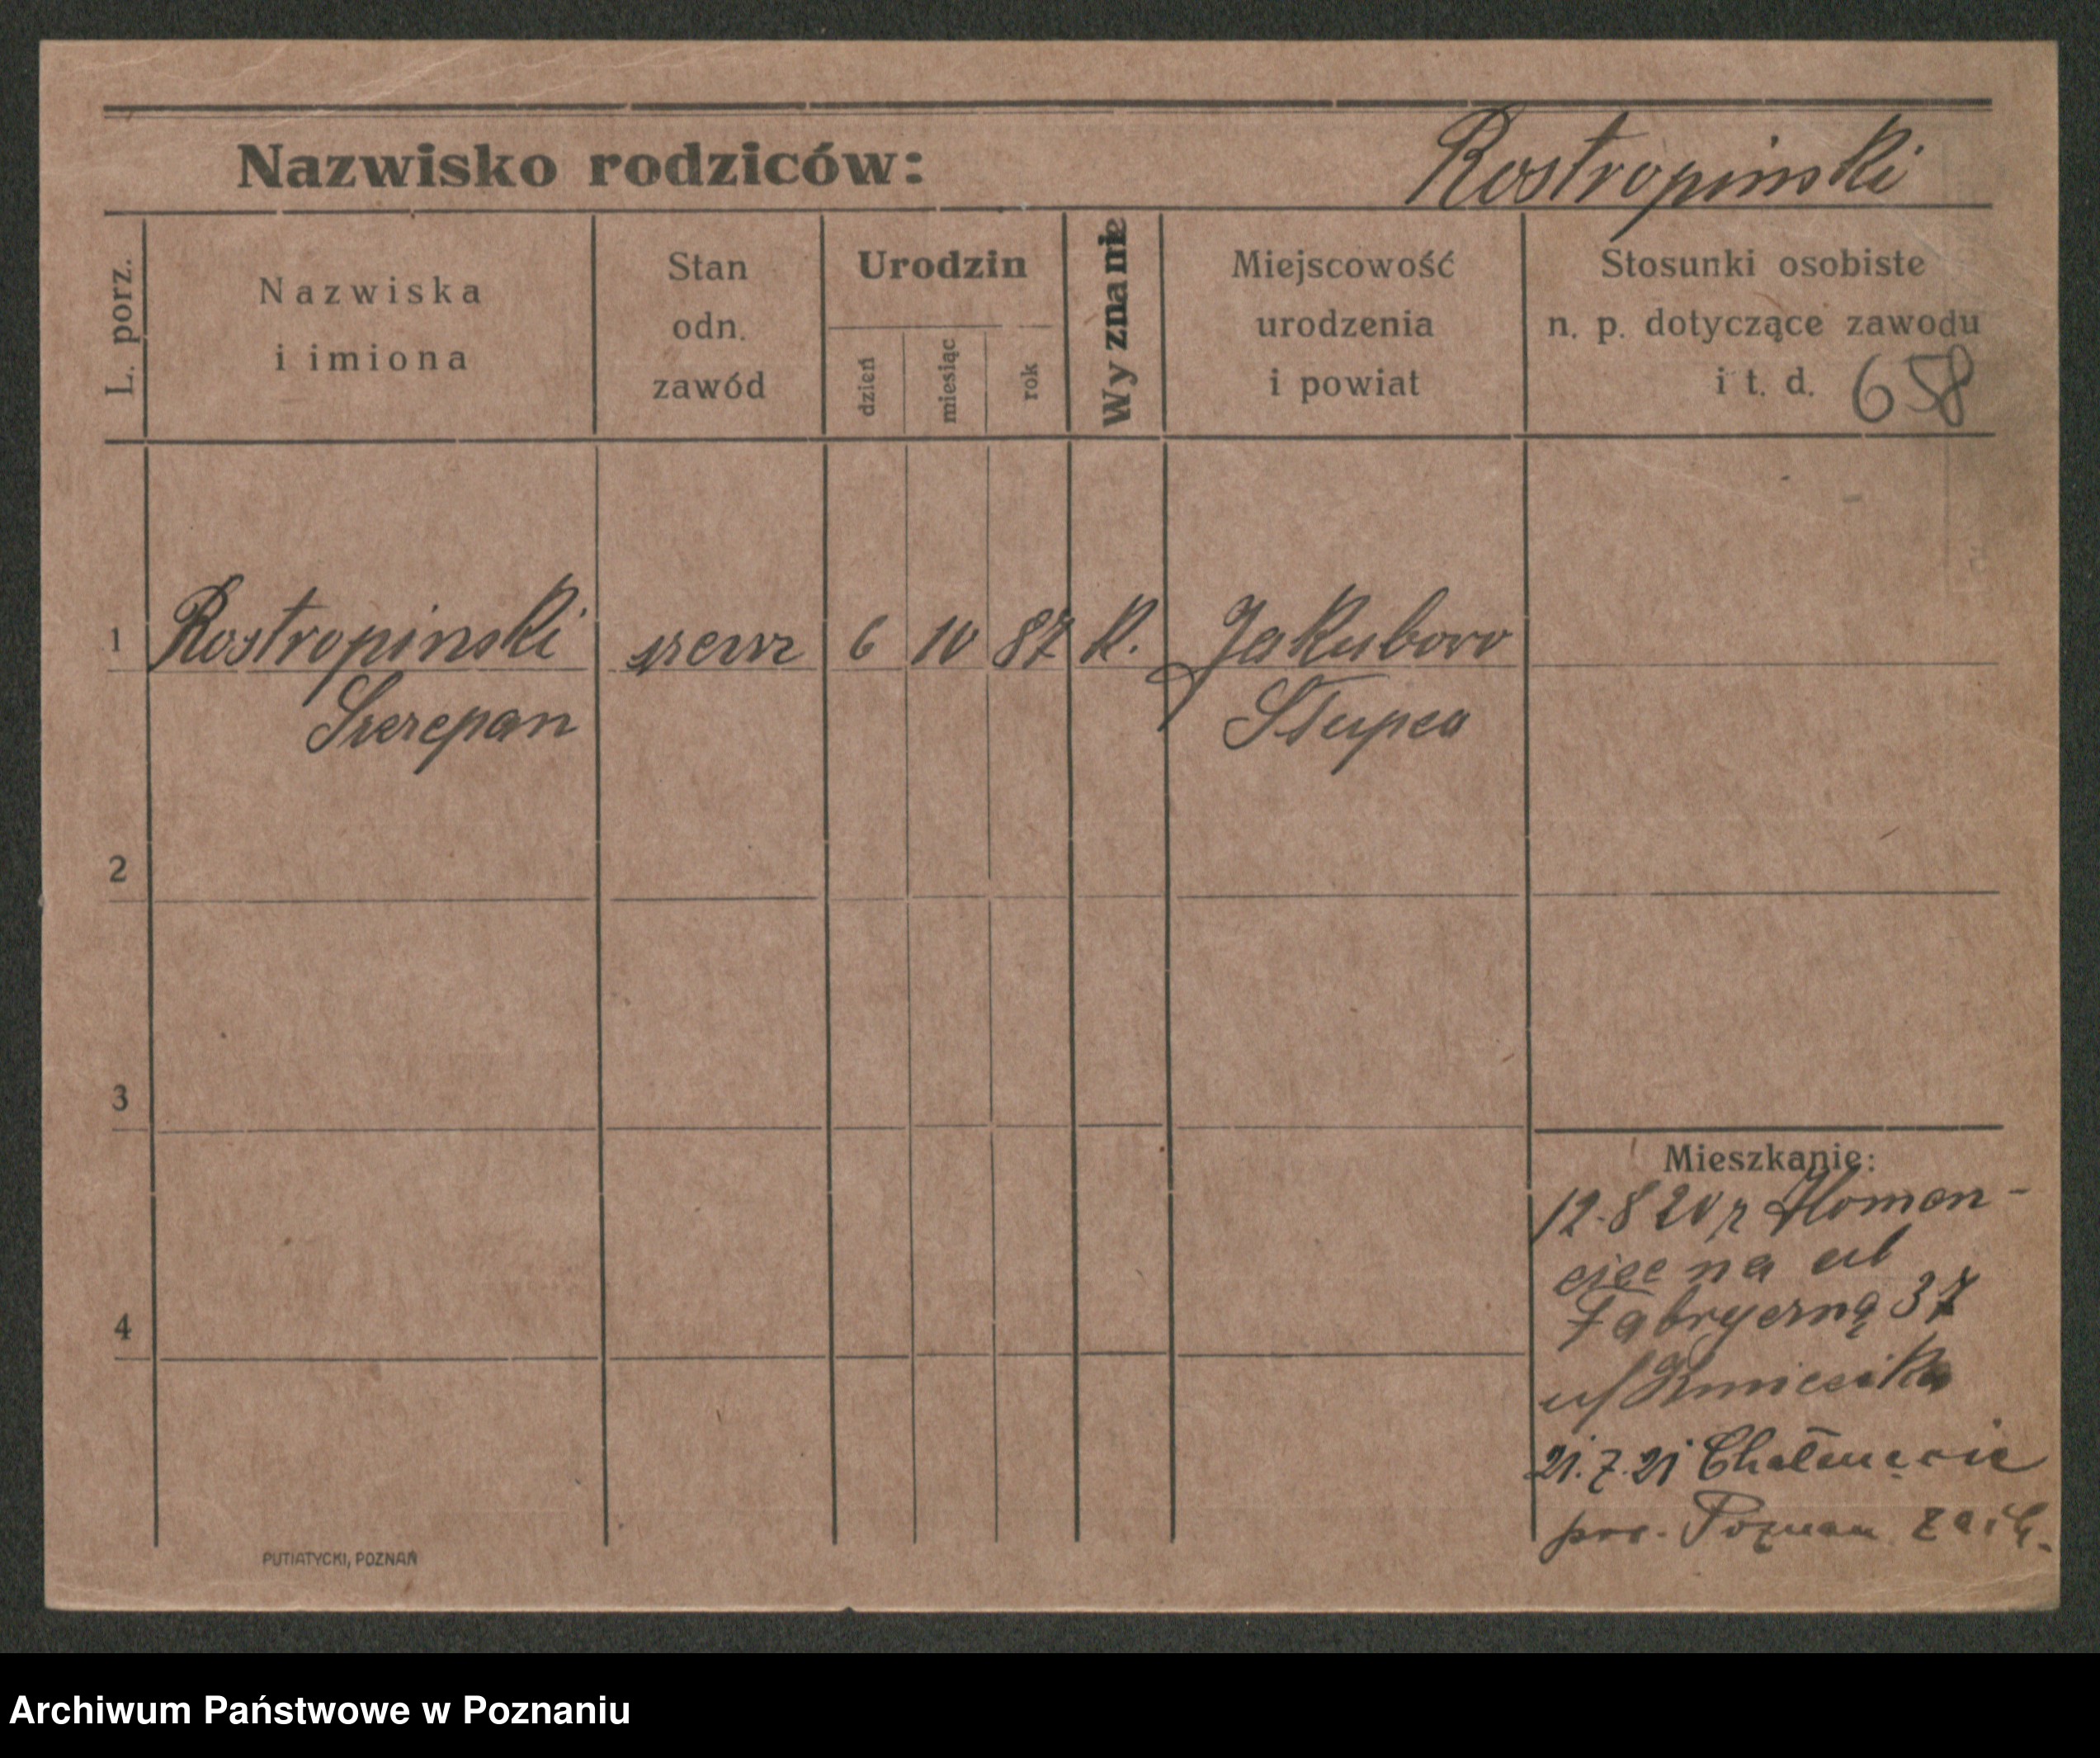 Nazwisko rodziców: Rostropinski
L. porz.
Nazwiska
i imiona
Stan
odn.
zawód
Urodzin
dzień
miesiąc
rok
Wyznanie
Miejscowość
urodzenia
i powiat
Stosunki osobiste
n. p. dotyczące zawodu
i t. d. 658
1 Rostropinski szewz 6 10 87 K. Jakubowo
Szczepan Słupca
2
3
4
Mieszkanie:
12.8 20 z
na ul
Fabryczną 37
u/ Kmiecika
21.7.21
pow. Poznan zach.
PUTIATYCKI, POZNAŃ
Archiwum Państwowe w Poznaniu